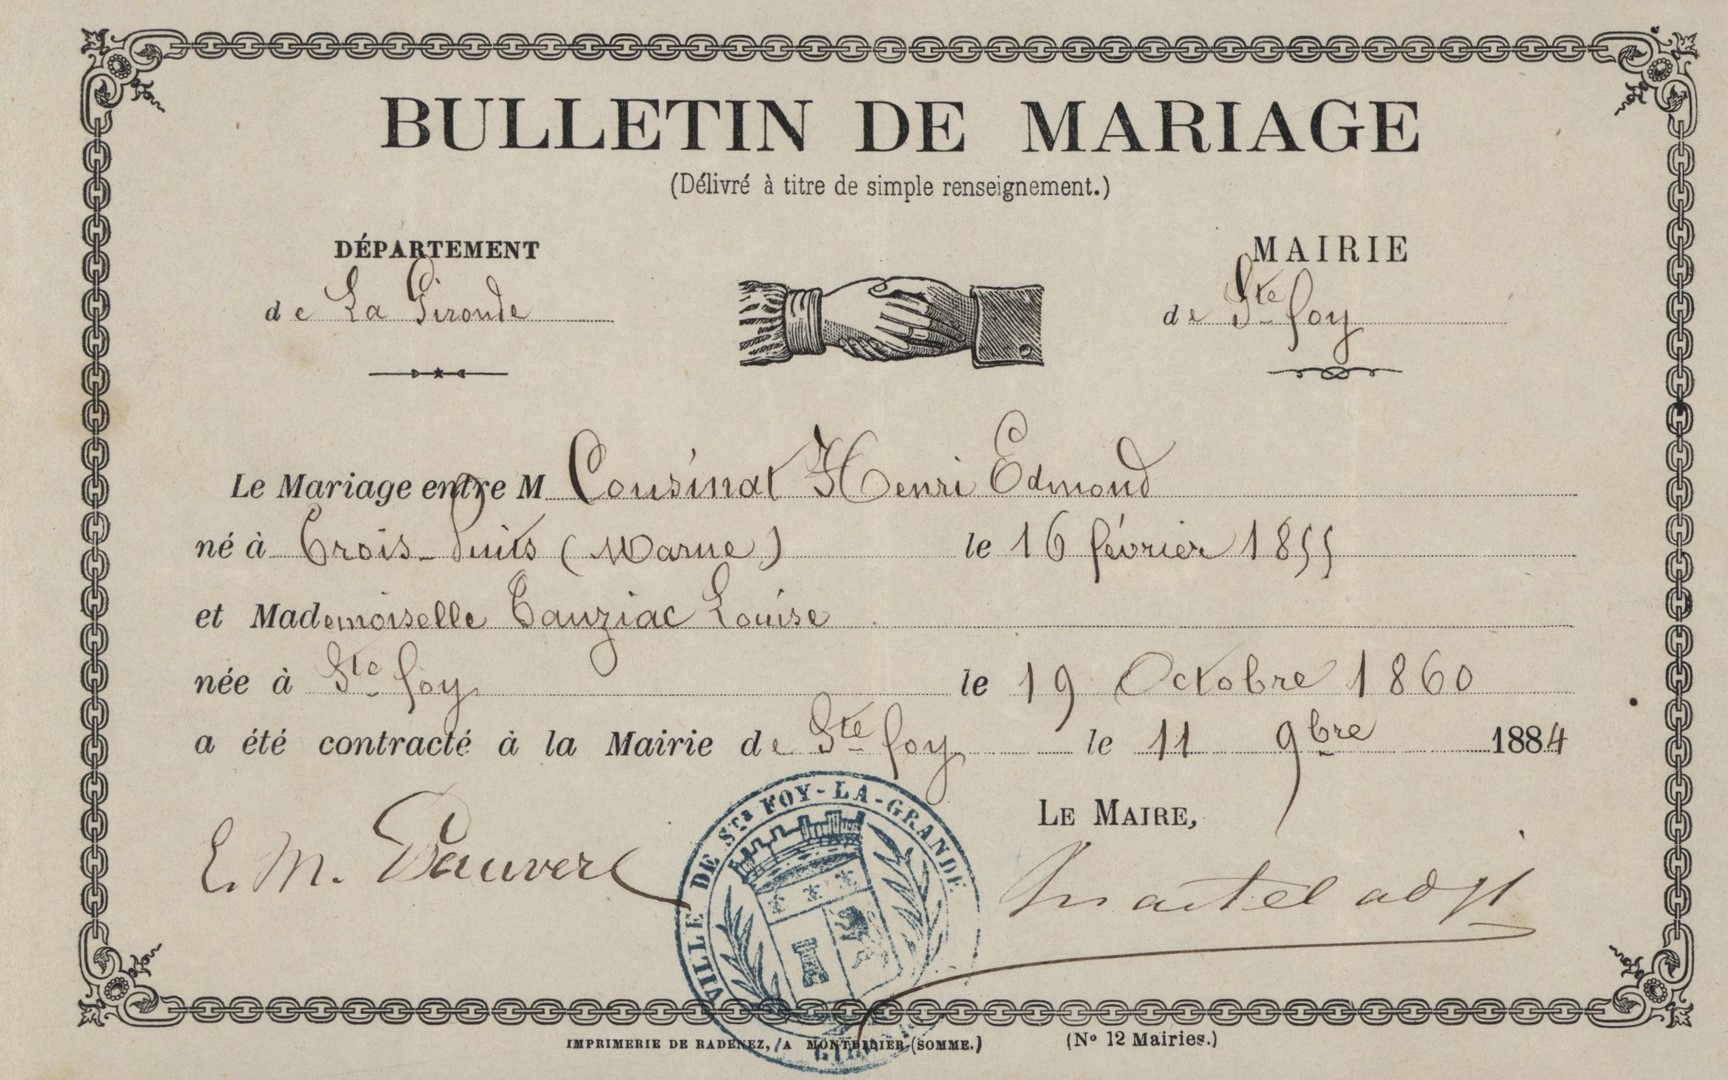 BULLETIN DE MARIAGE
(Délivré à titre de simple renseignement.)
DÉPARTEMENT
de La Gironde
MAIRIE
de Ste foy
Le Mariage entre M Cousinat Henri Edmond
né à Trois-Puits (Marne) le 16 février 1855
et Mademoiselle Tauziac Louise
née à Ste foy le 19 Octobre 1860
a été contracté à la Mairie de Ste foy le 11 9bre 1884
LE MAIRE,
E. M. Pauvert
Martel adjt
VILLE DE STE FOY-LA-GRANDE
IMPRIMERIE DE RADENEZ, A MONTDIDIER (SOMME.) (No 12 Mairies.)